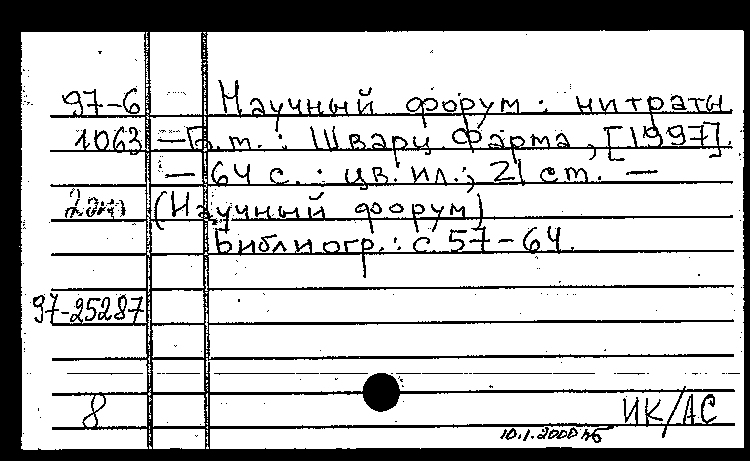 97-6 Научный форум: нитраты.
1063 — Б.т.: Шварц Фарма, [1997].
— 64 с.: цв. ил.; 21 ст. —
2 экз (Научный форум)
Библиогр.: с. 57-64.
97-25287
8 ИК/АС
10.1.2000